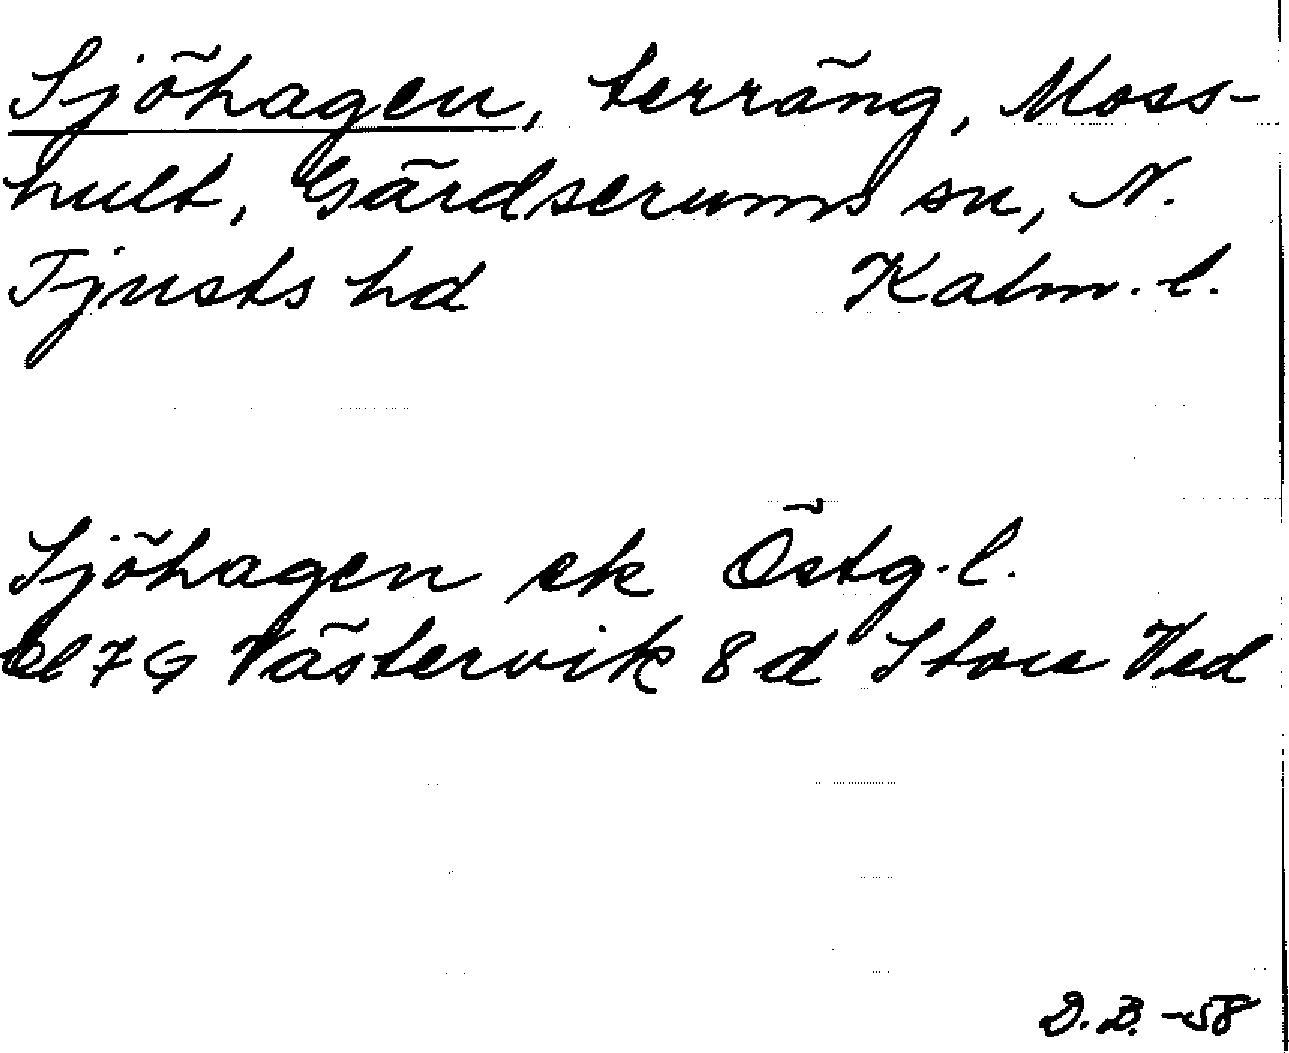 Sjöhagen, terräng, Moss-
hult, Gärdserums sn, N.
Tjusts hd Kalm. l.
Sjöhagen ek Östg. l.
bl 7 G Västervik 8 d Stora Ved
D. B. -58